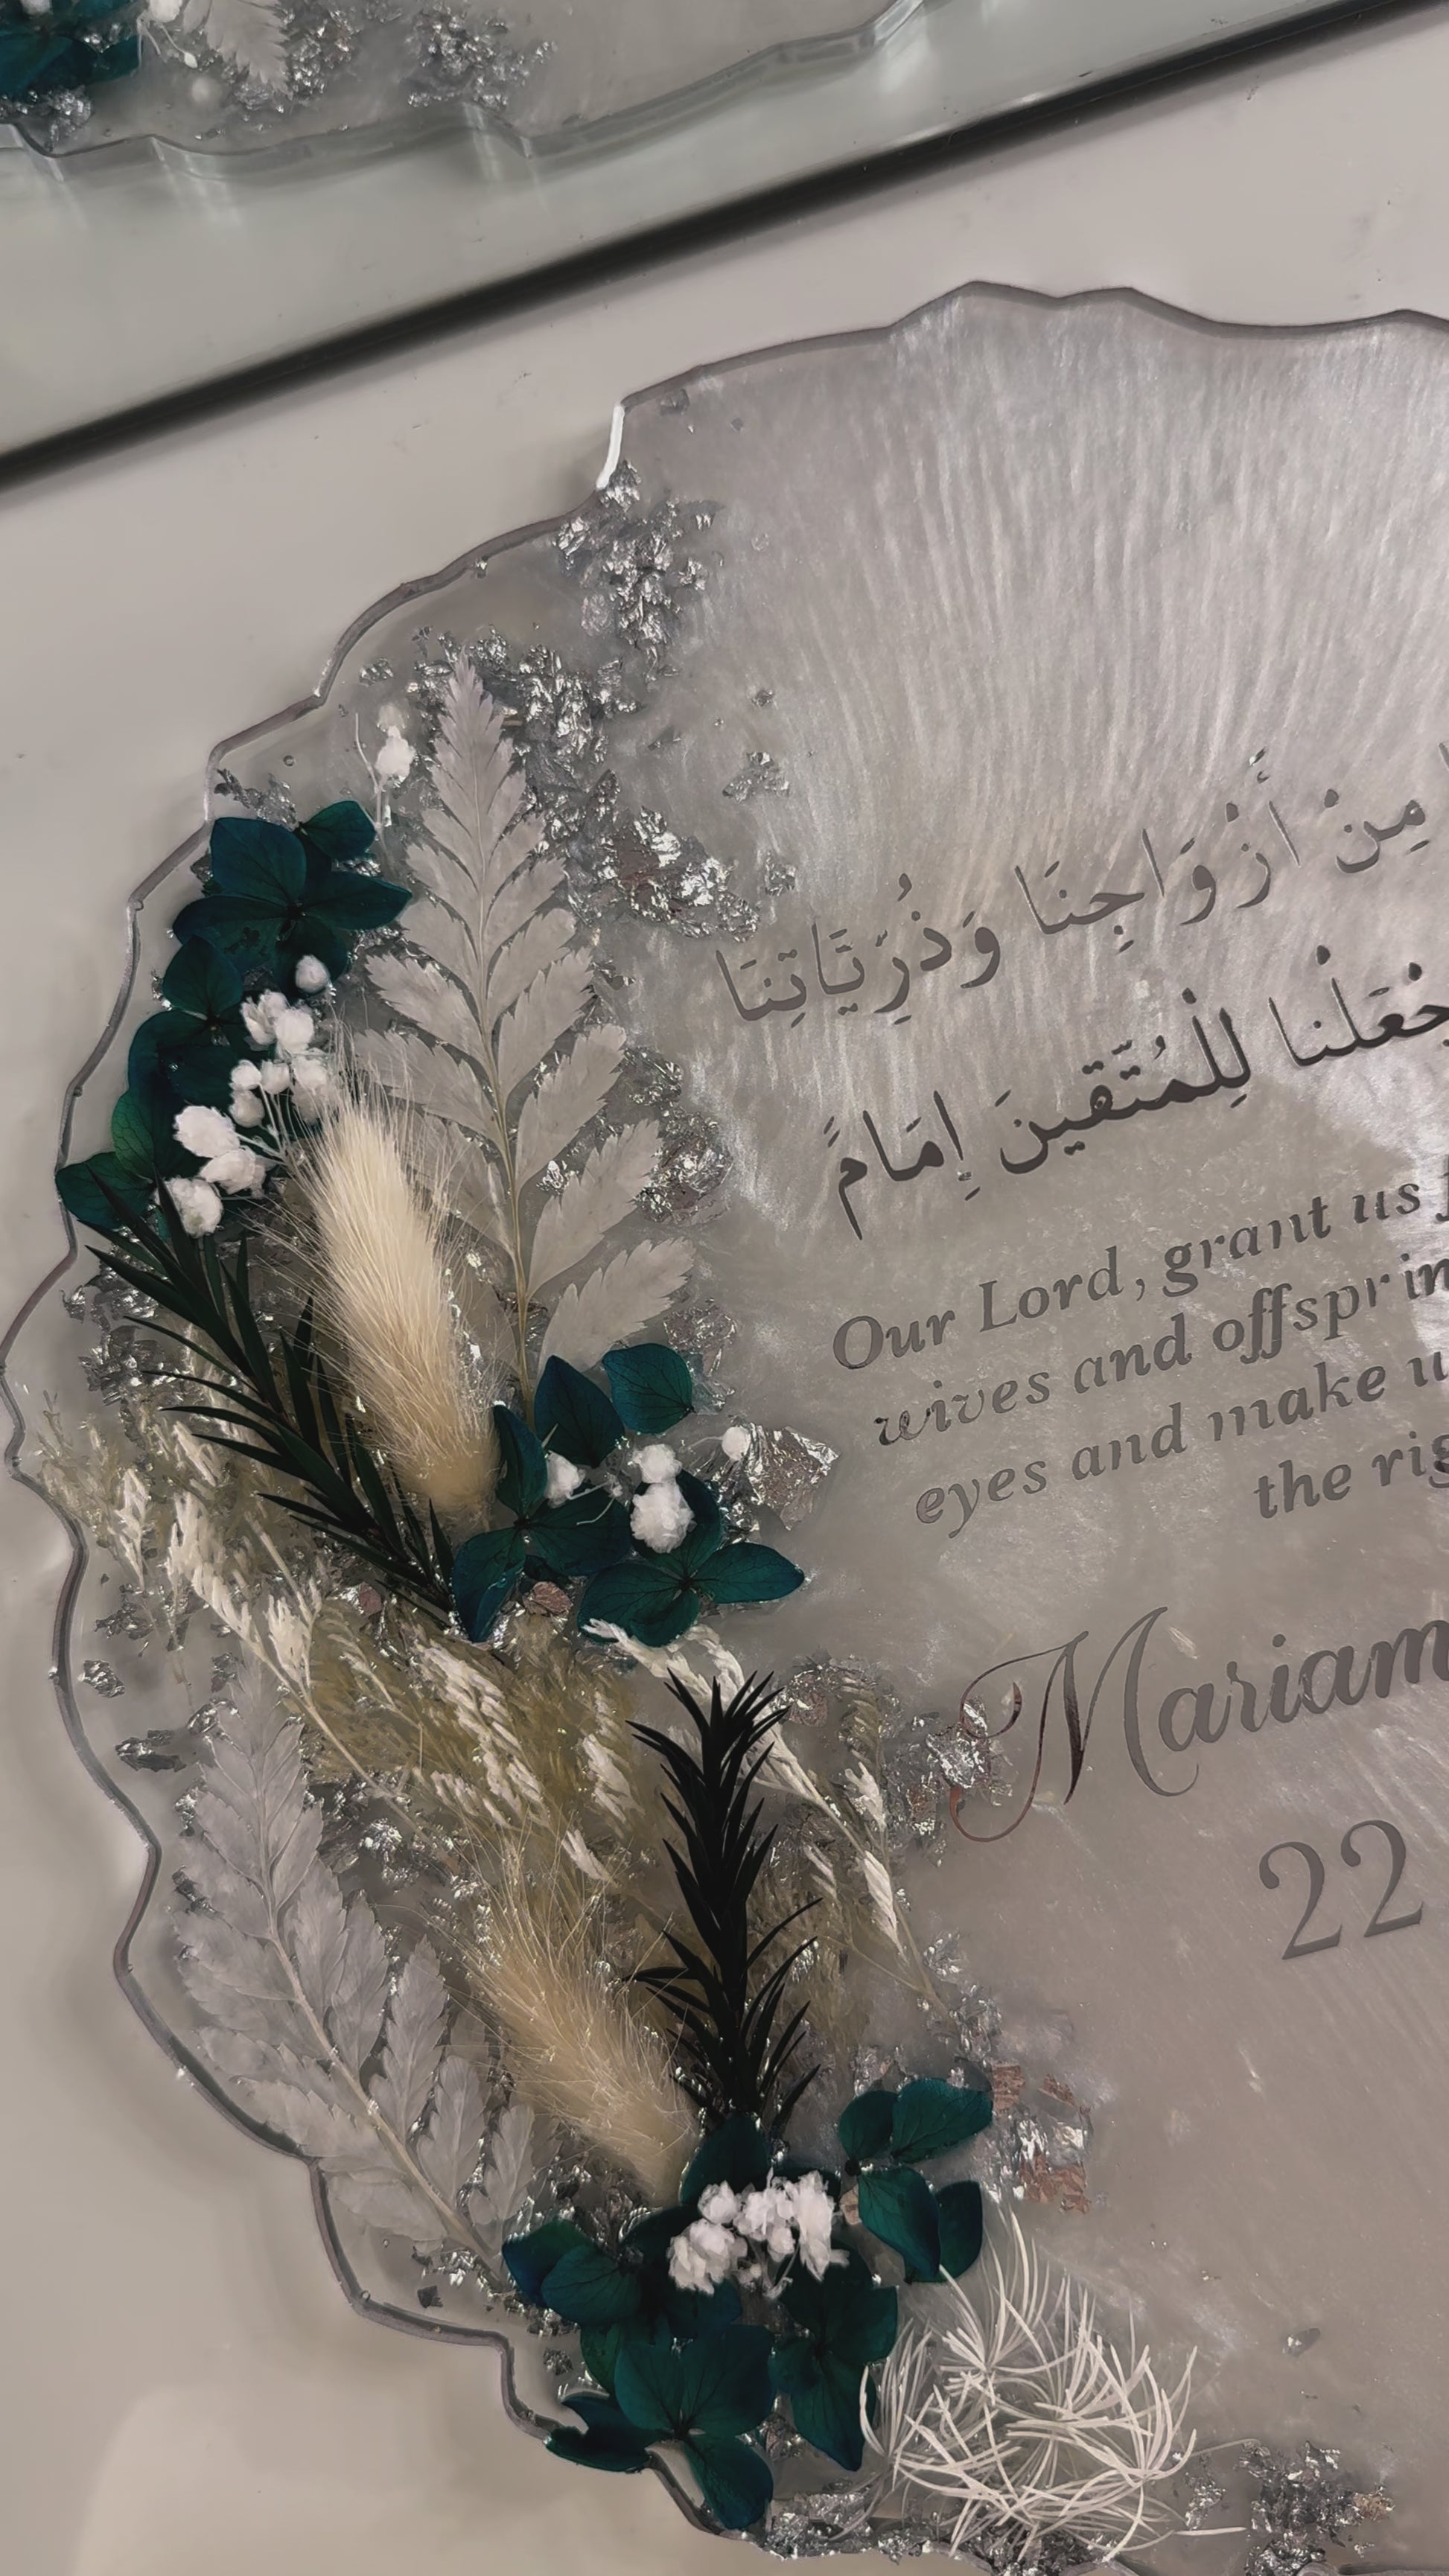 مِنْ أَزْوَاجِنَا وَذُرِّيَّاتِنَا
لِلْمُتَّقِينَ إِمَامً
Our Lord, grant us
wives and offsprin
eyes and make u
the rig
Mariam
22